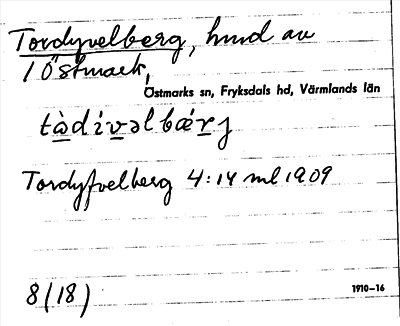 Tordyvelberg, hmd av
i Östmark,
Östmarks sn, Fryksdals hd, Värmlands län
tàdivəlbæ̀rj
Tordyfvelberg 4:14 ml 1909
8(18)
1910–16